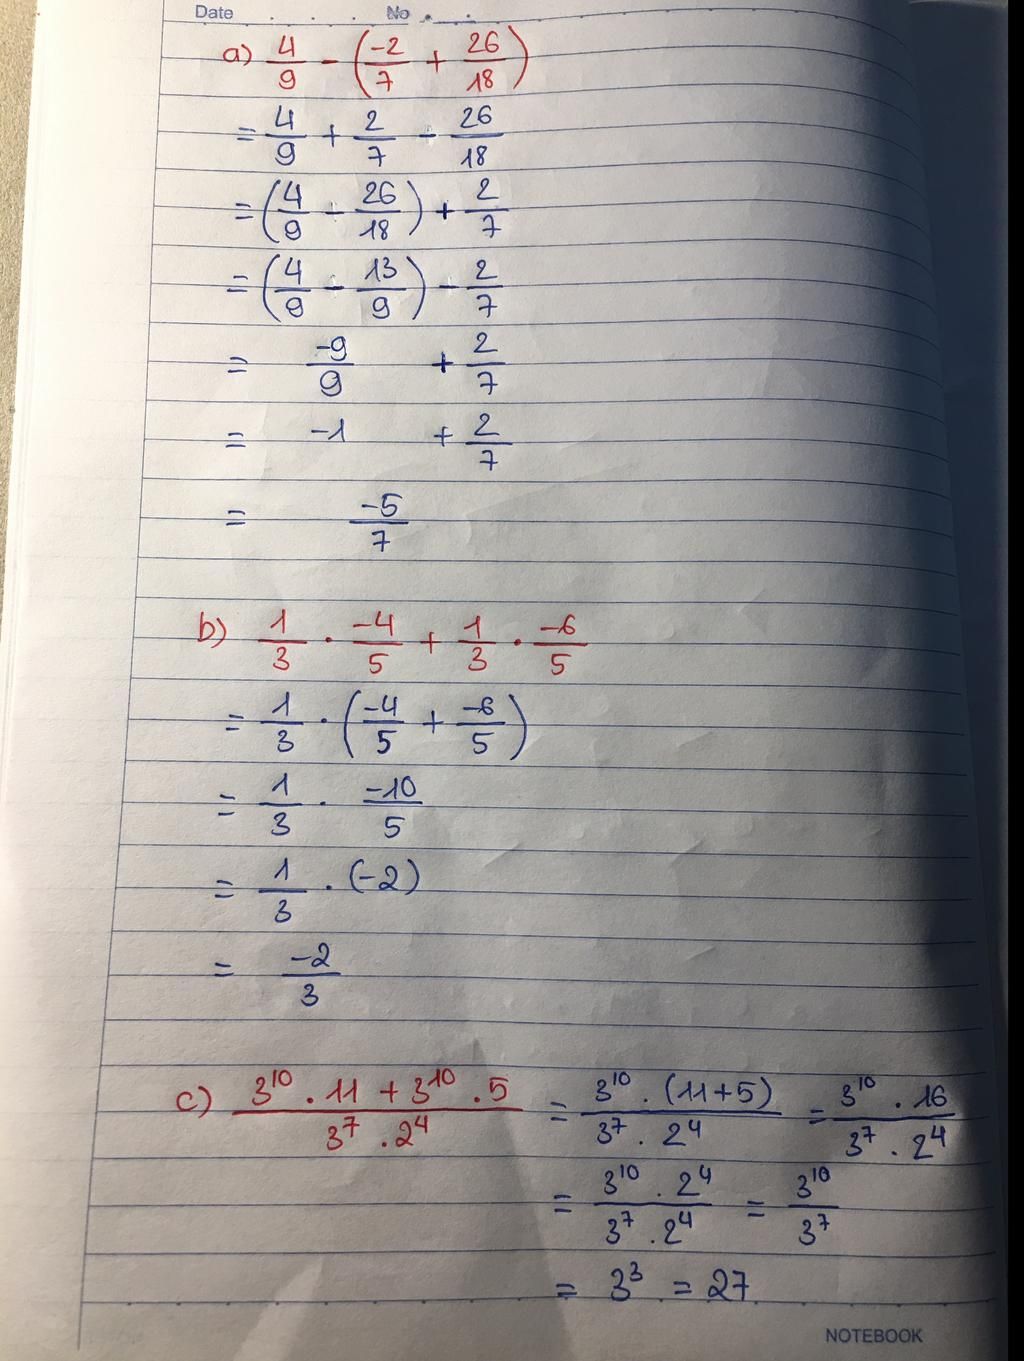 Date No
a) 4/9 - (-2/7 + 26/18)
= 4/9 + 2/7 - 26/18
= (4/9 - 26/18) + 2/7
= (4/9 - 13/9) - 2/7
= -9/9 + 2/7
= -1 + 2/7
= -5/7
b) 1/3 . -4/5 + 1/3 . -6/5
= 1/3 . (-4/5 + -6/5)
= 1/3 . -10/5
= 1/3 . (-2)
= -2/3
c) (3¹⁰ . 11 + 3¹⁰ . 5)/(3⁷ . 2⁴) = (3¹⁰ . (11+5))/(3⁷ . 2⁴) = (3¹⁰ . 16)/(3⁷ . 2⁴)
= (3¹⁰ . 2⁴)/(3⁷ . 2⁴) = 3¹⁰/3⁷
= 3³ = 27
NOTEBOOK